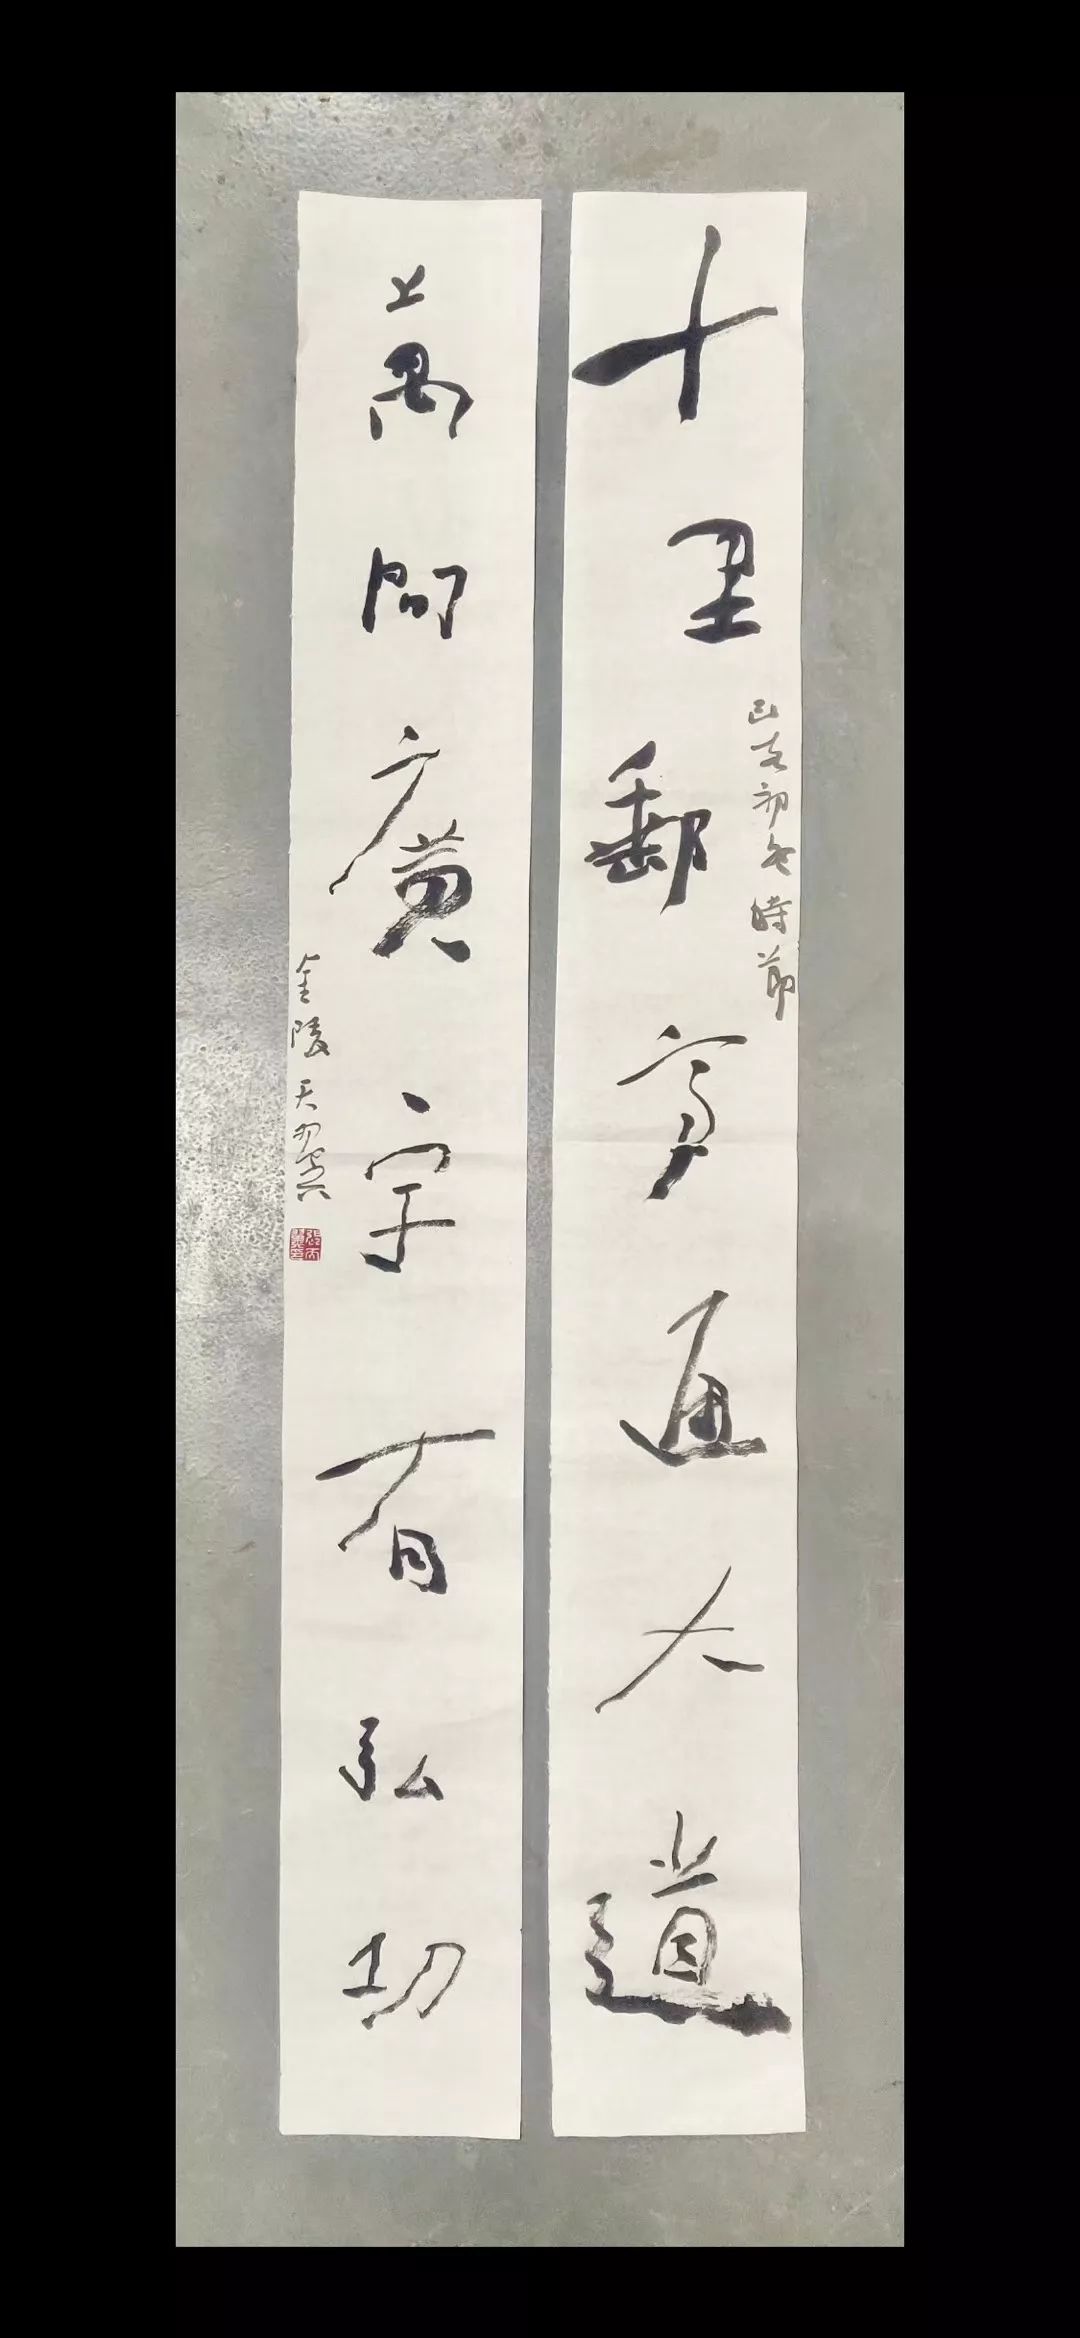 十里郵亭通大道
己亥初冬時節
萬間廣宇有弘功
金陵天翼
張天翼印